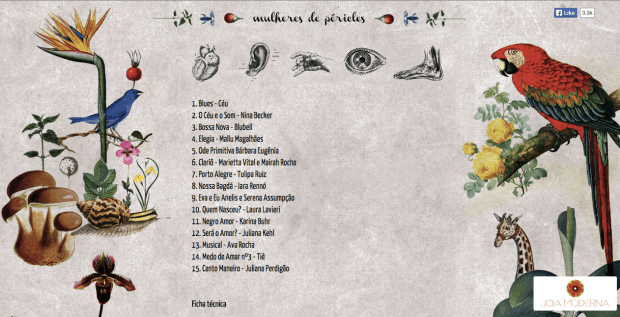 mulheres de péricles
Like 3.2k
1. Blues - Céu
2. O Céu e o Som - Nina Becker
3. Bossa Nova - Blubell
4. Elegia - Mallu Magalhães
5. Ode Primitiva Bárbara Eugênia
6. Clariô - Marietta Vital e Mairah Rocha
7. Porto Alegre - Tulipa Ruiz
8. Nossa Bagdá - Iara Rennó
9. Eva e Eu Anelis e Serena Assumpção
10. Quem Nasceu? - Laura Lavieri
11. Negro Amor - Karina Buhr
12. Será o Amor? - Juliana Kehl
13. Musical - Ava Rocha
14. Medo de Amar nº3 - Tiê
15. Canto Maneiro - Juliana Perdigão
Ficha técnica
JOIA MODERNA